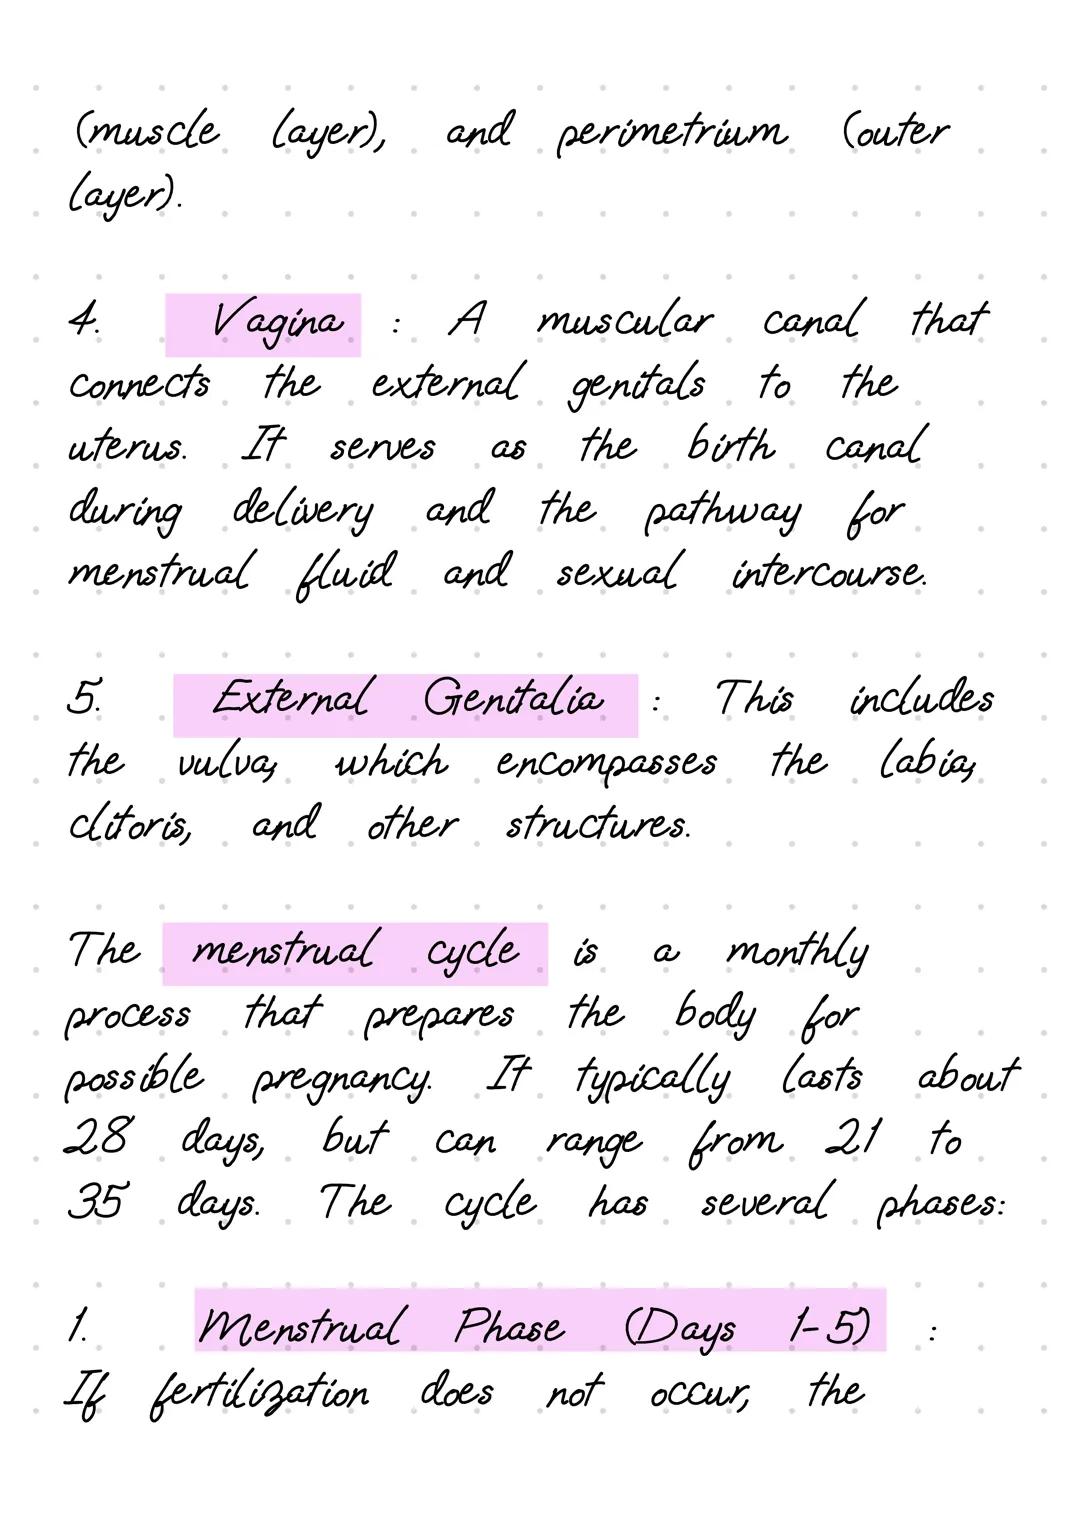 (muscle layer), and perimetrium (outer
layer).
4. Vagina : A muscular canal that
connects the external genitals to the
uterus. It serves as the birth canal
during delivery and the pathway for
menstrual fluid and sexual intercourse.
5. External Genitalia : This includes
the vulva, which encompasses the labia,
clitoris, and other structures.
The menstrual cycle is a monthly
process that prepares the body for
possible pregnancy. It typically lasts about
28 days, but can range from 21 to
35 days. The cycle has several phases:
1. Menstrual Phase (Days 1-5) :
If fertilization does not occur, the